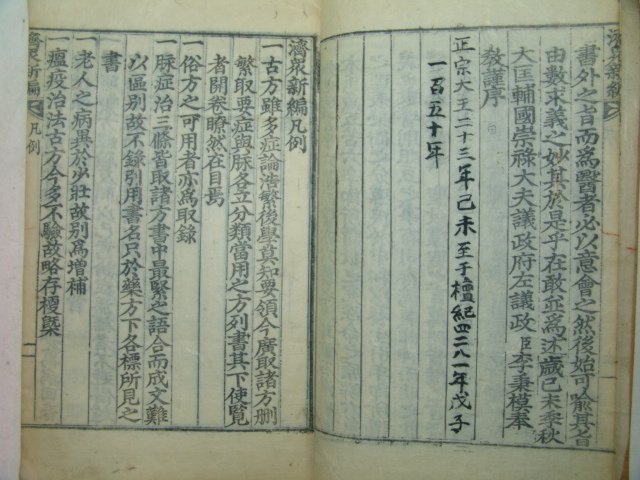 書外之旨而爲醫者必以意會之然後始可喩其旨
由數求義之妙其於是乎在敢並爲述歲己未季秋
大匡輔國崇祿大夫議政府左議政臣李秉模奉
敎謹序
正宗大王二十三年己未至于檀紀四二八一年戊子
一百五十年
濟衆新編凡例
一古方雖多症論浩繁後學莫知要領今廣取諸方刪
繁取要症與脉各立分類當用之方列書其下使覽
者開卷瞭然在目焉
一俗方之可用者亦爲取錄
一脉症治三條皆取諸方書中最緊之語合而成文難
以區別故不錄引用書名只於藥方下各標所見之
書
一老人之病異於少壯故別爲增補
一瘟疫治法古方今多不驗故略存梗槩
濟衆新編 凡例 一